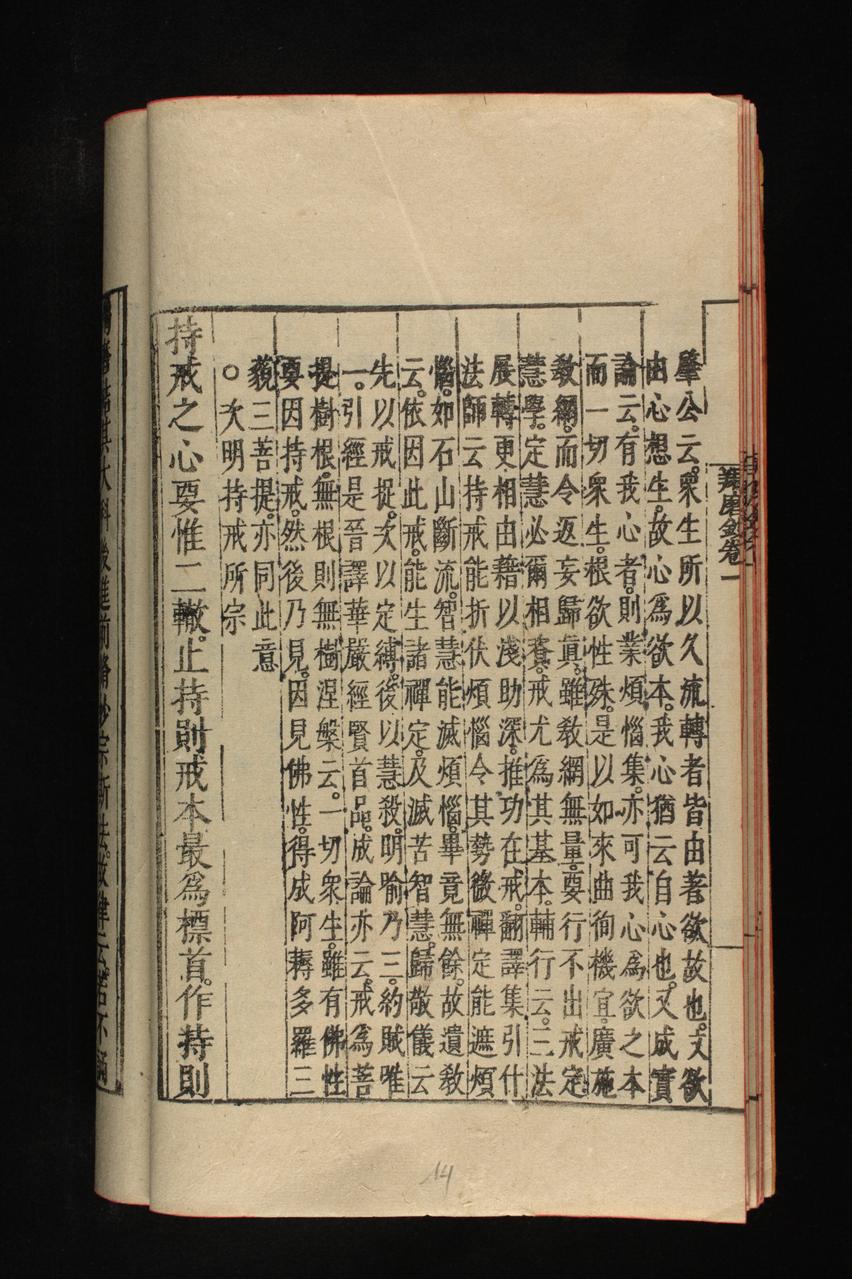 羯磨鈔卷一
肇公云。衆生所以久流轉者皆由著欲故也。又欲
由心想生。故心爲欲本。我心猶云自心也。又成實
論云。有我心者。則業煩惱集。亦可我心爲欲之本
而一切衆生。根欲性殊。是以如來曲徇機宜。廣施
教網。而令返妄歸眞。雖教網無量。要行不出戒定
慧學。定慧必爾相資。戒尤爲其基本。輔行云。三法
展轉更相由藉以淺助深。推功在戒。翻譯集引什
法師云持戒能折伏煩惱令其勢微禪定能遮煩
惱。如石山斷流。智慧能滅煩惱。畢竟無餘。故遺教
云。依因此戒。能生諸禪定。及滅苦智慧。歸敬儀云
先以戒捉。次以定縛。後以慧殺。明喻乃三。約賊唯
一。引經是晉譯華嚴經賢首品。成論亦云。戒爲菩
提樹根。無根則無樹涅槃云。一切衆生。雖有佛性
要因持戒。然後乃見。因見佛性。得成阿耨多羅三
藐三菩提。亦同此意
○次明持戒所宗
持戒之心要惟二轍。止持則戒本最爲標首。作持則